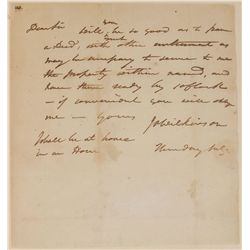 you
Dear Sir Will be so good as to form
a Deed, with such other instrument as
may be necessary to secure to me
the Property within named, and
have them ready by 10 oClock
— if convenient you will oblige
me — Yours
Ja Wilkinson
I shall be at home
in an Hour
Thursday